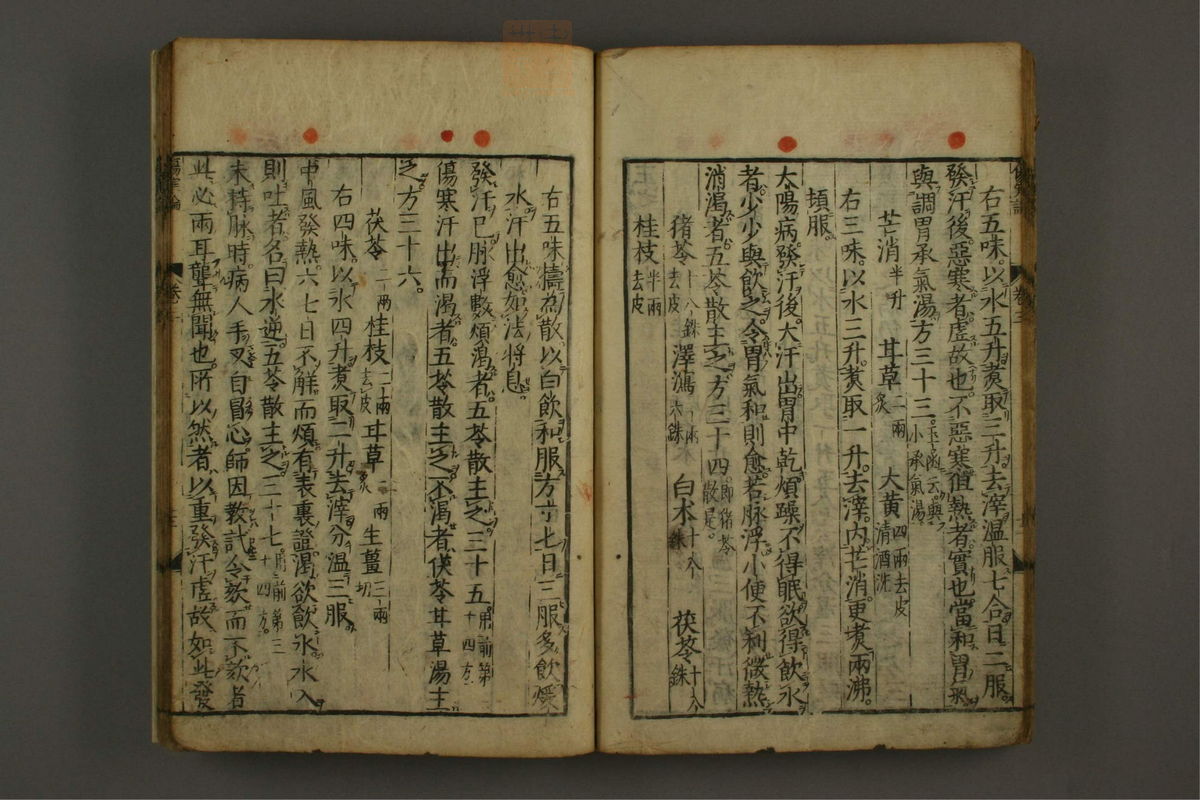 右五味。以水五升煑取三升。去滓溫服七合日三服
發汗後惡寒者虛故也。不惡寒但熱者實也當和胃氣
與調胃承氣湯方三十三。玉函云。與小承氣湯
芒消半升 甘草二兩炙 大黄四兩去皮清酒洗
右三味。以水三升。煑取一升。去滓。內芒消更煑兩沸。
頓服。
太陽病。發汗後。大汗出。胃中乾。煩躁不得眠。欲得飲水
者。少少與飲之。令胃氣和則愈。若脉浮。小便不利。微熱
消渴者。五苓散主之。方三十四。即猪苓散是。
猪苓十八銖去皮 澤瀉一兩六銖 白朮十八銖 茯苓十八銖
桂枝半兩去皮
右五味。擣為散。以白飲和服方寸七。日三服。多飲煖
水。汗出愈。如法將息。
發汗已。脉浮數。煩渴者。五苓散主之。三十五。用前第三十四方
傷寒汗出而渴者。五苓散主之。不渴者。茯苓甘草湯主
之。方三十六。
茯苓二兩 桂枝二兩去皮 甘草一兩炙 生薑三兩切
右四味。以水四升。煑取二升。去滓。分溫三服
中風發熱。六七日不解而煩。有表裏證。渴欲飲水。水入
則吐者。名曰水逆。五苓散主之。三十七。用前第三十四方。
未持脉時。病人手叉自冒心。師因教試令欬。而不欬者
此必兩耳聾無聞也。所以然者。以重發汗虛故如此。發